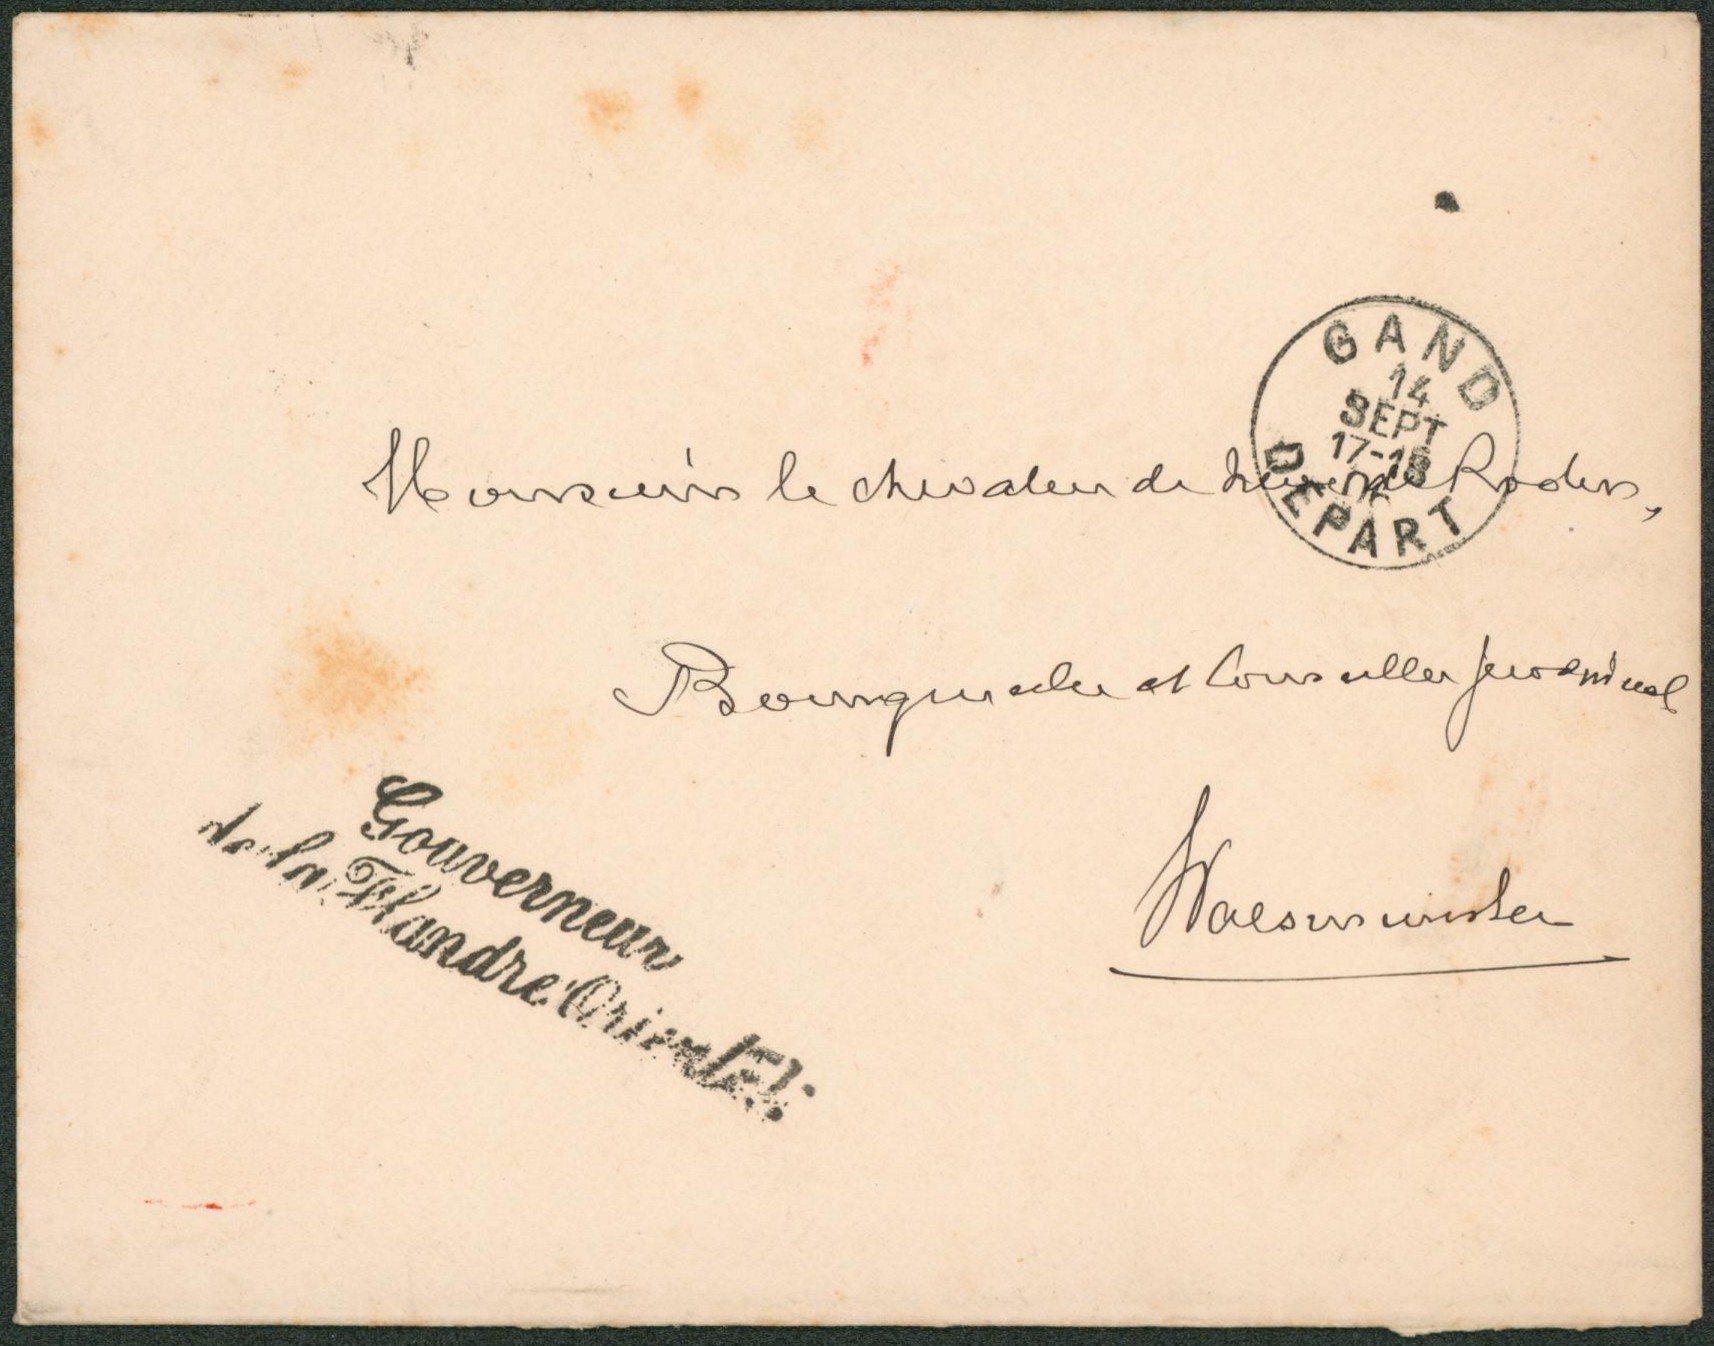 GAND
14
SEPT
17-18
DEPART
Monsieur le chevalier de
Bourgmestre et Conseiller provincial
Waesmunster
Gouverneur
de la Flandre Orientale